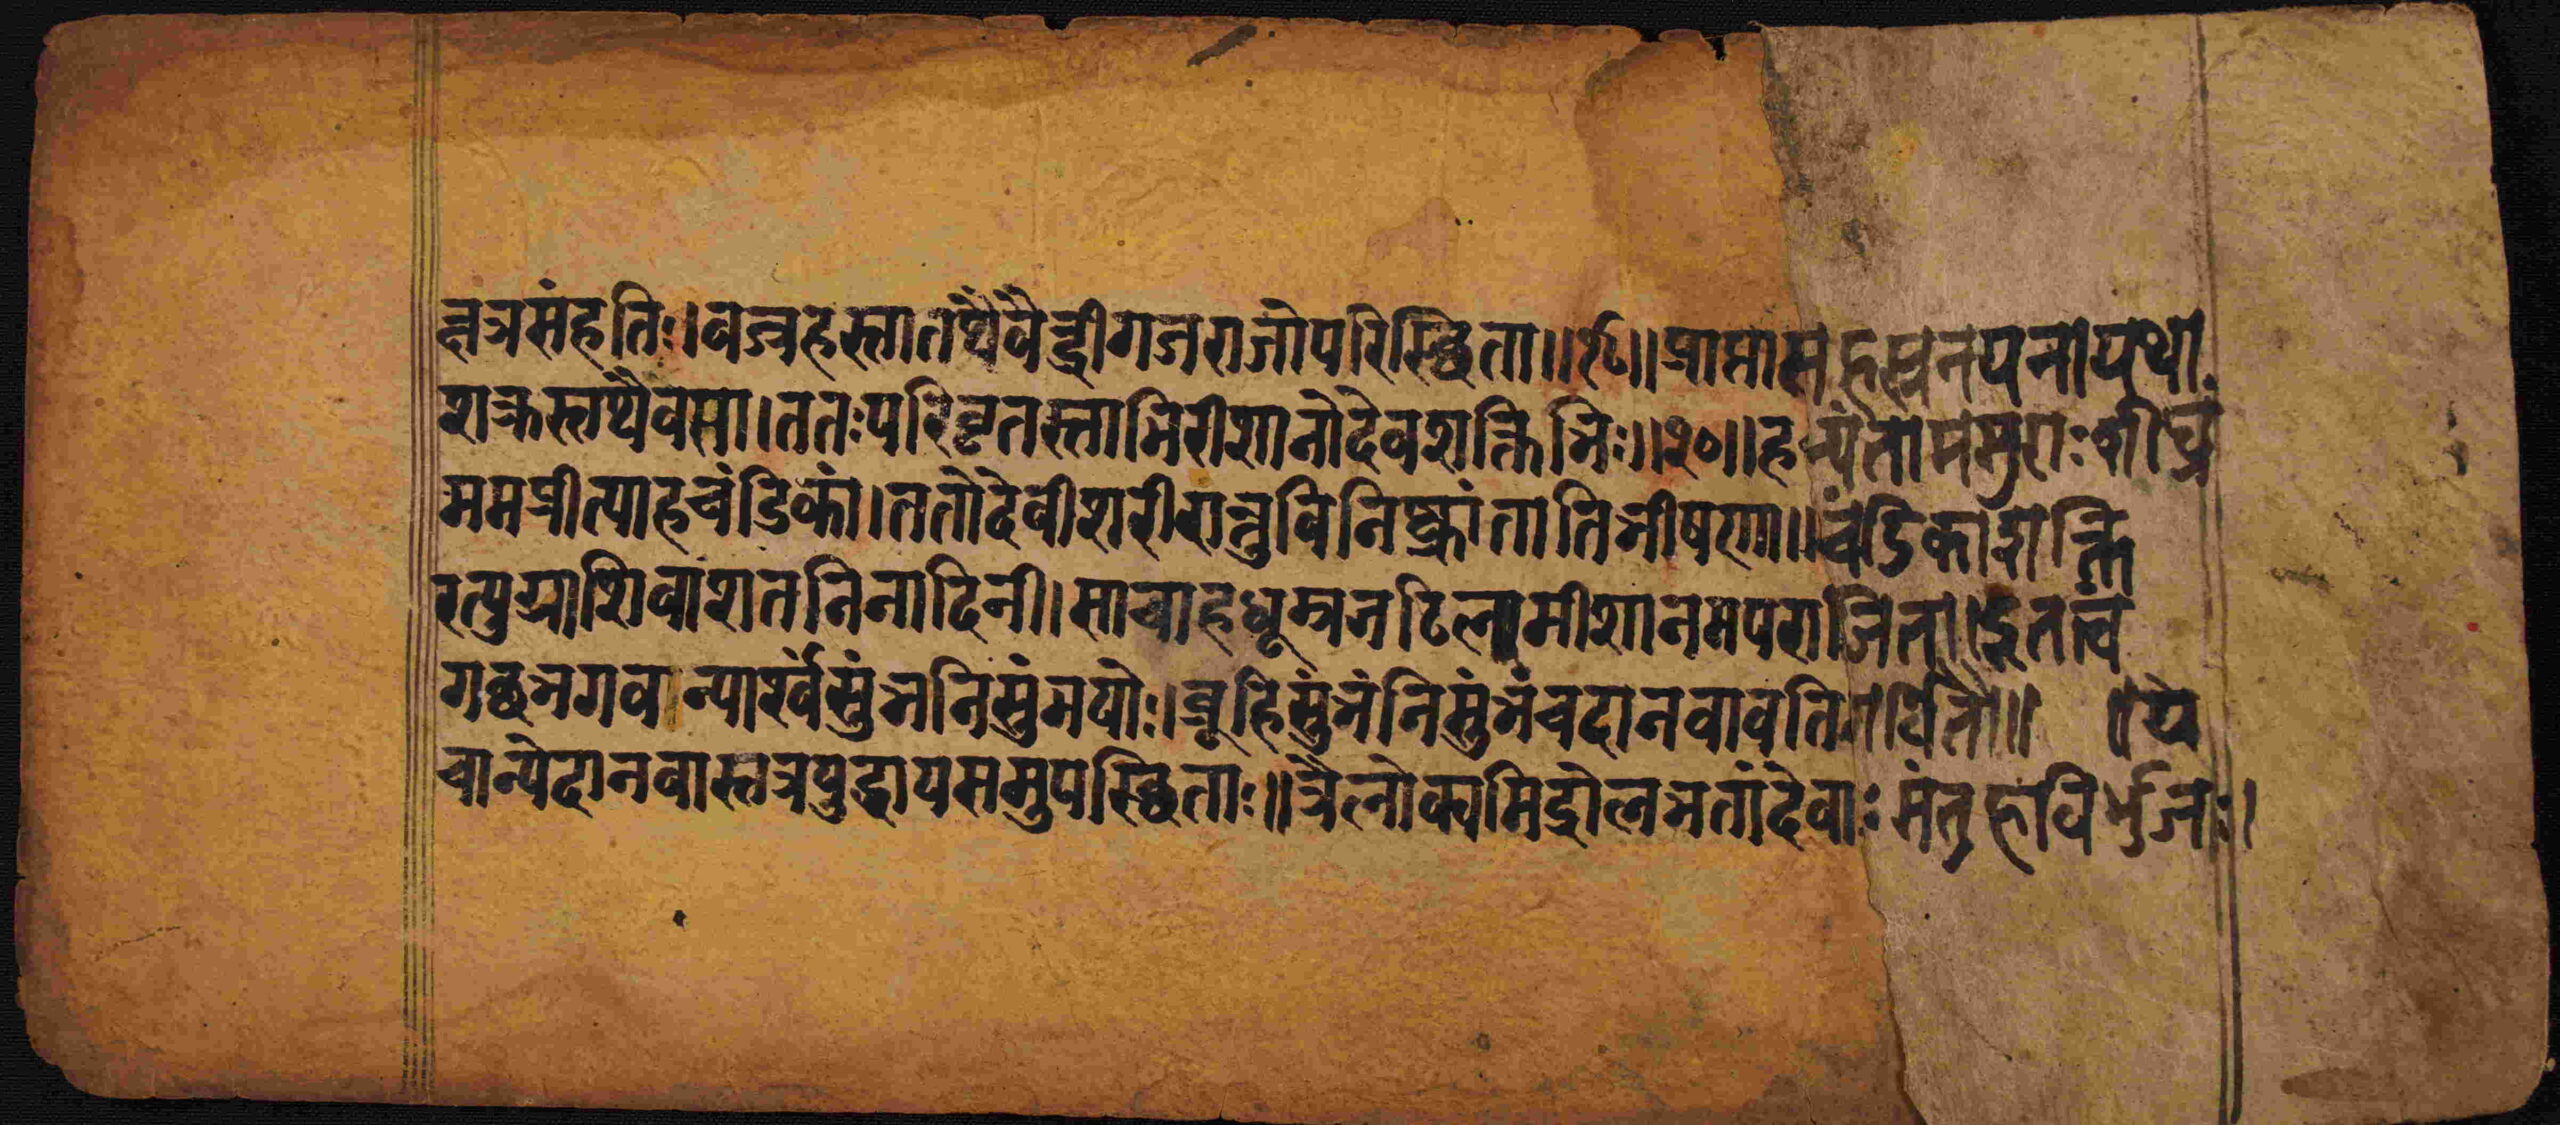 क्षत्रसंहतिः।वज्रहस्तातथैवैन्द्रीगजराजोपरिस्थिता॥१९॥प्राप्तासहस्रनयनायथा
शक्रस्तथैवसा।ततःपरिवृतस्ताभिरीशानोदेवशक्तिभिः॥२०॥हन्यंतामसुराःशीघ्रं
ममप्रीत्याहचंडिकां।ततोदेवीशरीरात्तुविनिष्क्रांतातिभीषणा॥चंडिकाशक्ति
रत्युग्राशिवाशतनिनादिनी।साचाहधूम्रजटिलमीशानमपराजिता।दूतत्वं
गच्छभगवन्पार्श्वंसुंभनिसुंभयोः।ब्रूहिसुंभंनिसुंभंचदानवावतिगर्वितौ॥ ॥ये
चान्येदानवास्तत्रयुद्धायसमुपस्थिताः॥त्रैलोक्यमिंद्रोलभतांदेवाः संतु हविर्भुजः।